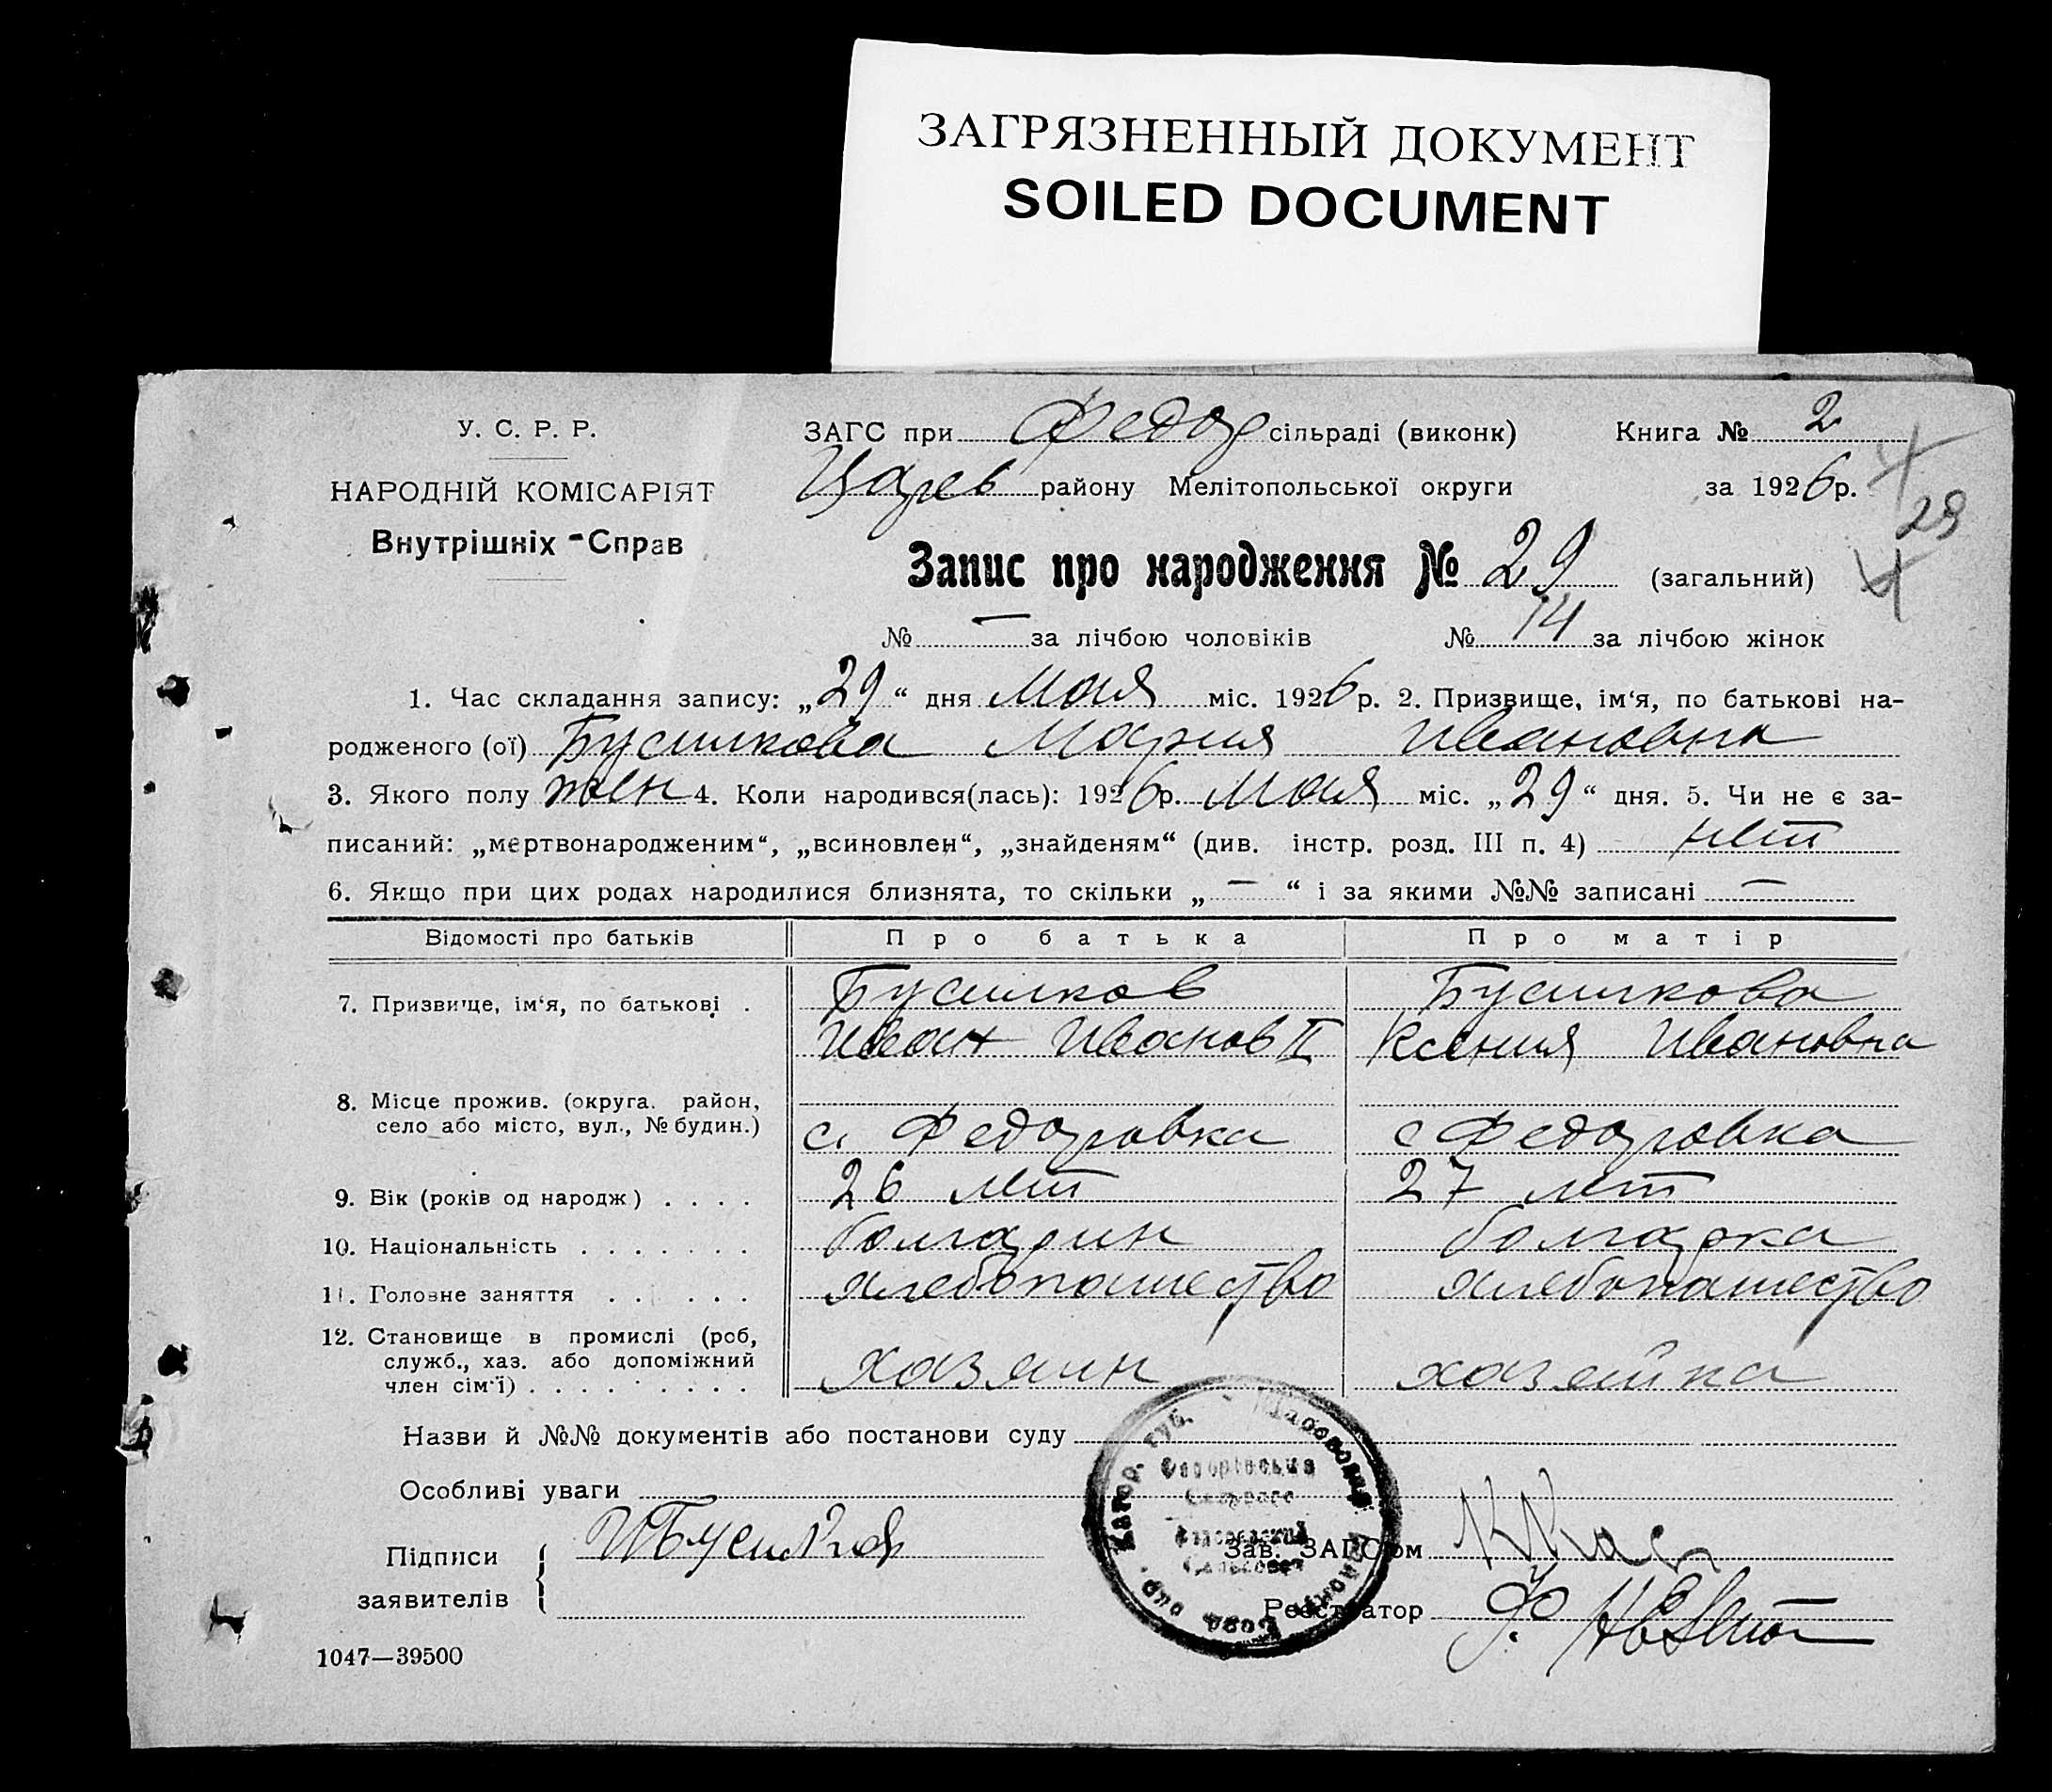 ЗАГРЯЗНЕННЫЙ ДОКУМЕНТ
SOILED DOCUMENT
У. С. Р. Р.
НАРОДНІЙ КОМІСАРІЯТ
Внутрішніх-Справ
ЗАГС при Федор сільраді (виконк) Книга № 2
Царев району Мелітопольської округи за 1926 р.
29
Запис про народження № 29 (загальний)
№ — за лічбою чоловіків № 14 за лічбою жінок
1. Час складання запису: „29“ дня Мая міс. 1926 р. 2. Призвище, ім‘я, по батькові на-
родженого (ої) Бусилкова Мария Ивановна
3. Якого полу жен 4. Коли народився(лась): 1926 р. Мая міс. „29“ дня. 5. Чи не є за-
писаний: „мертвонародженим“, „всиновлен“, „знайденям“ (див. інстр. розд. III п. 4) нет
6. Якщо при цих родах народилися близнята, то скільки „—“ і за якими №№ записані —
Відомості про батьків Про батька Про матір
7. Призвище, ім‘я, по батькові . Бусилков Бусилкова
Иван Иванов II Ксения Ивановна
8. Місце прожив. (округа. район,
село або місто, вул., № будин.) с. Федоровка с Федоровка
9. Вік (років од народж) . . . . 26 лет 27 лет
10. Національність . . . . . . . болгарин болгарка
11. Головне заняття . . . . . . хлебопашество хлебопашество
12. Становище в промислі (роб,
служб., хаз. або допоміжний
член сім‘ї) . . . . . . . . . хазяин хазяйка
Назви й №№ документів або постанови суду
Особливі уваги
Підписи ИБусилков Зав. ЗАГС‘ом
заявителів Реєстратор
1047—39500